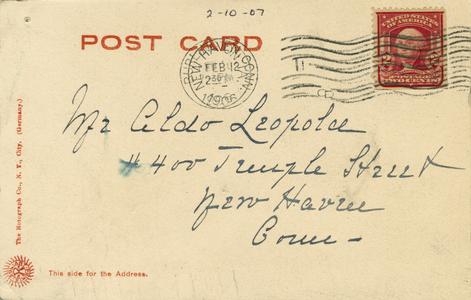 2-10-07
POST CARD
NEW HAVEN, CONN.
FEB 12
230 PM
1906
UNITED STATES OF AMERICA
POSTAGE
TWO CENTS
Mr Aldo Leopold
#400 Temple Street
New Haven
Conn-
The Rotograph Co., N. Y., City. (Germany.)
This side for the Address.